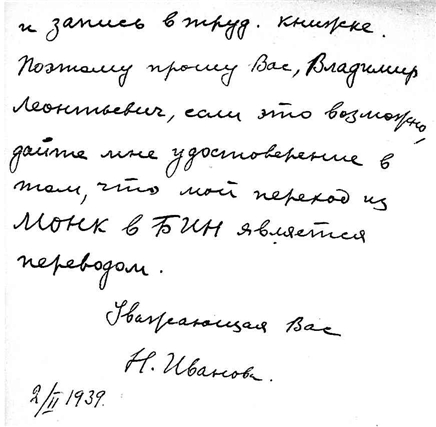 и запись в труд. книжке.
Поэтому прошу Вас, Владимир
Леонтьевич, если это возможно,
дайте мне удостоверение в
том, что мой переход из
МОНК в БИН является
переводом.
Уважающая Вас
Н. Иванова.
2/II 1939.